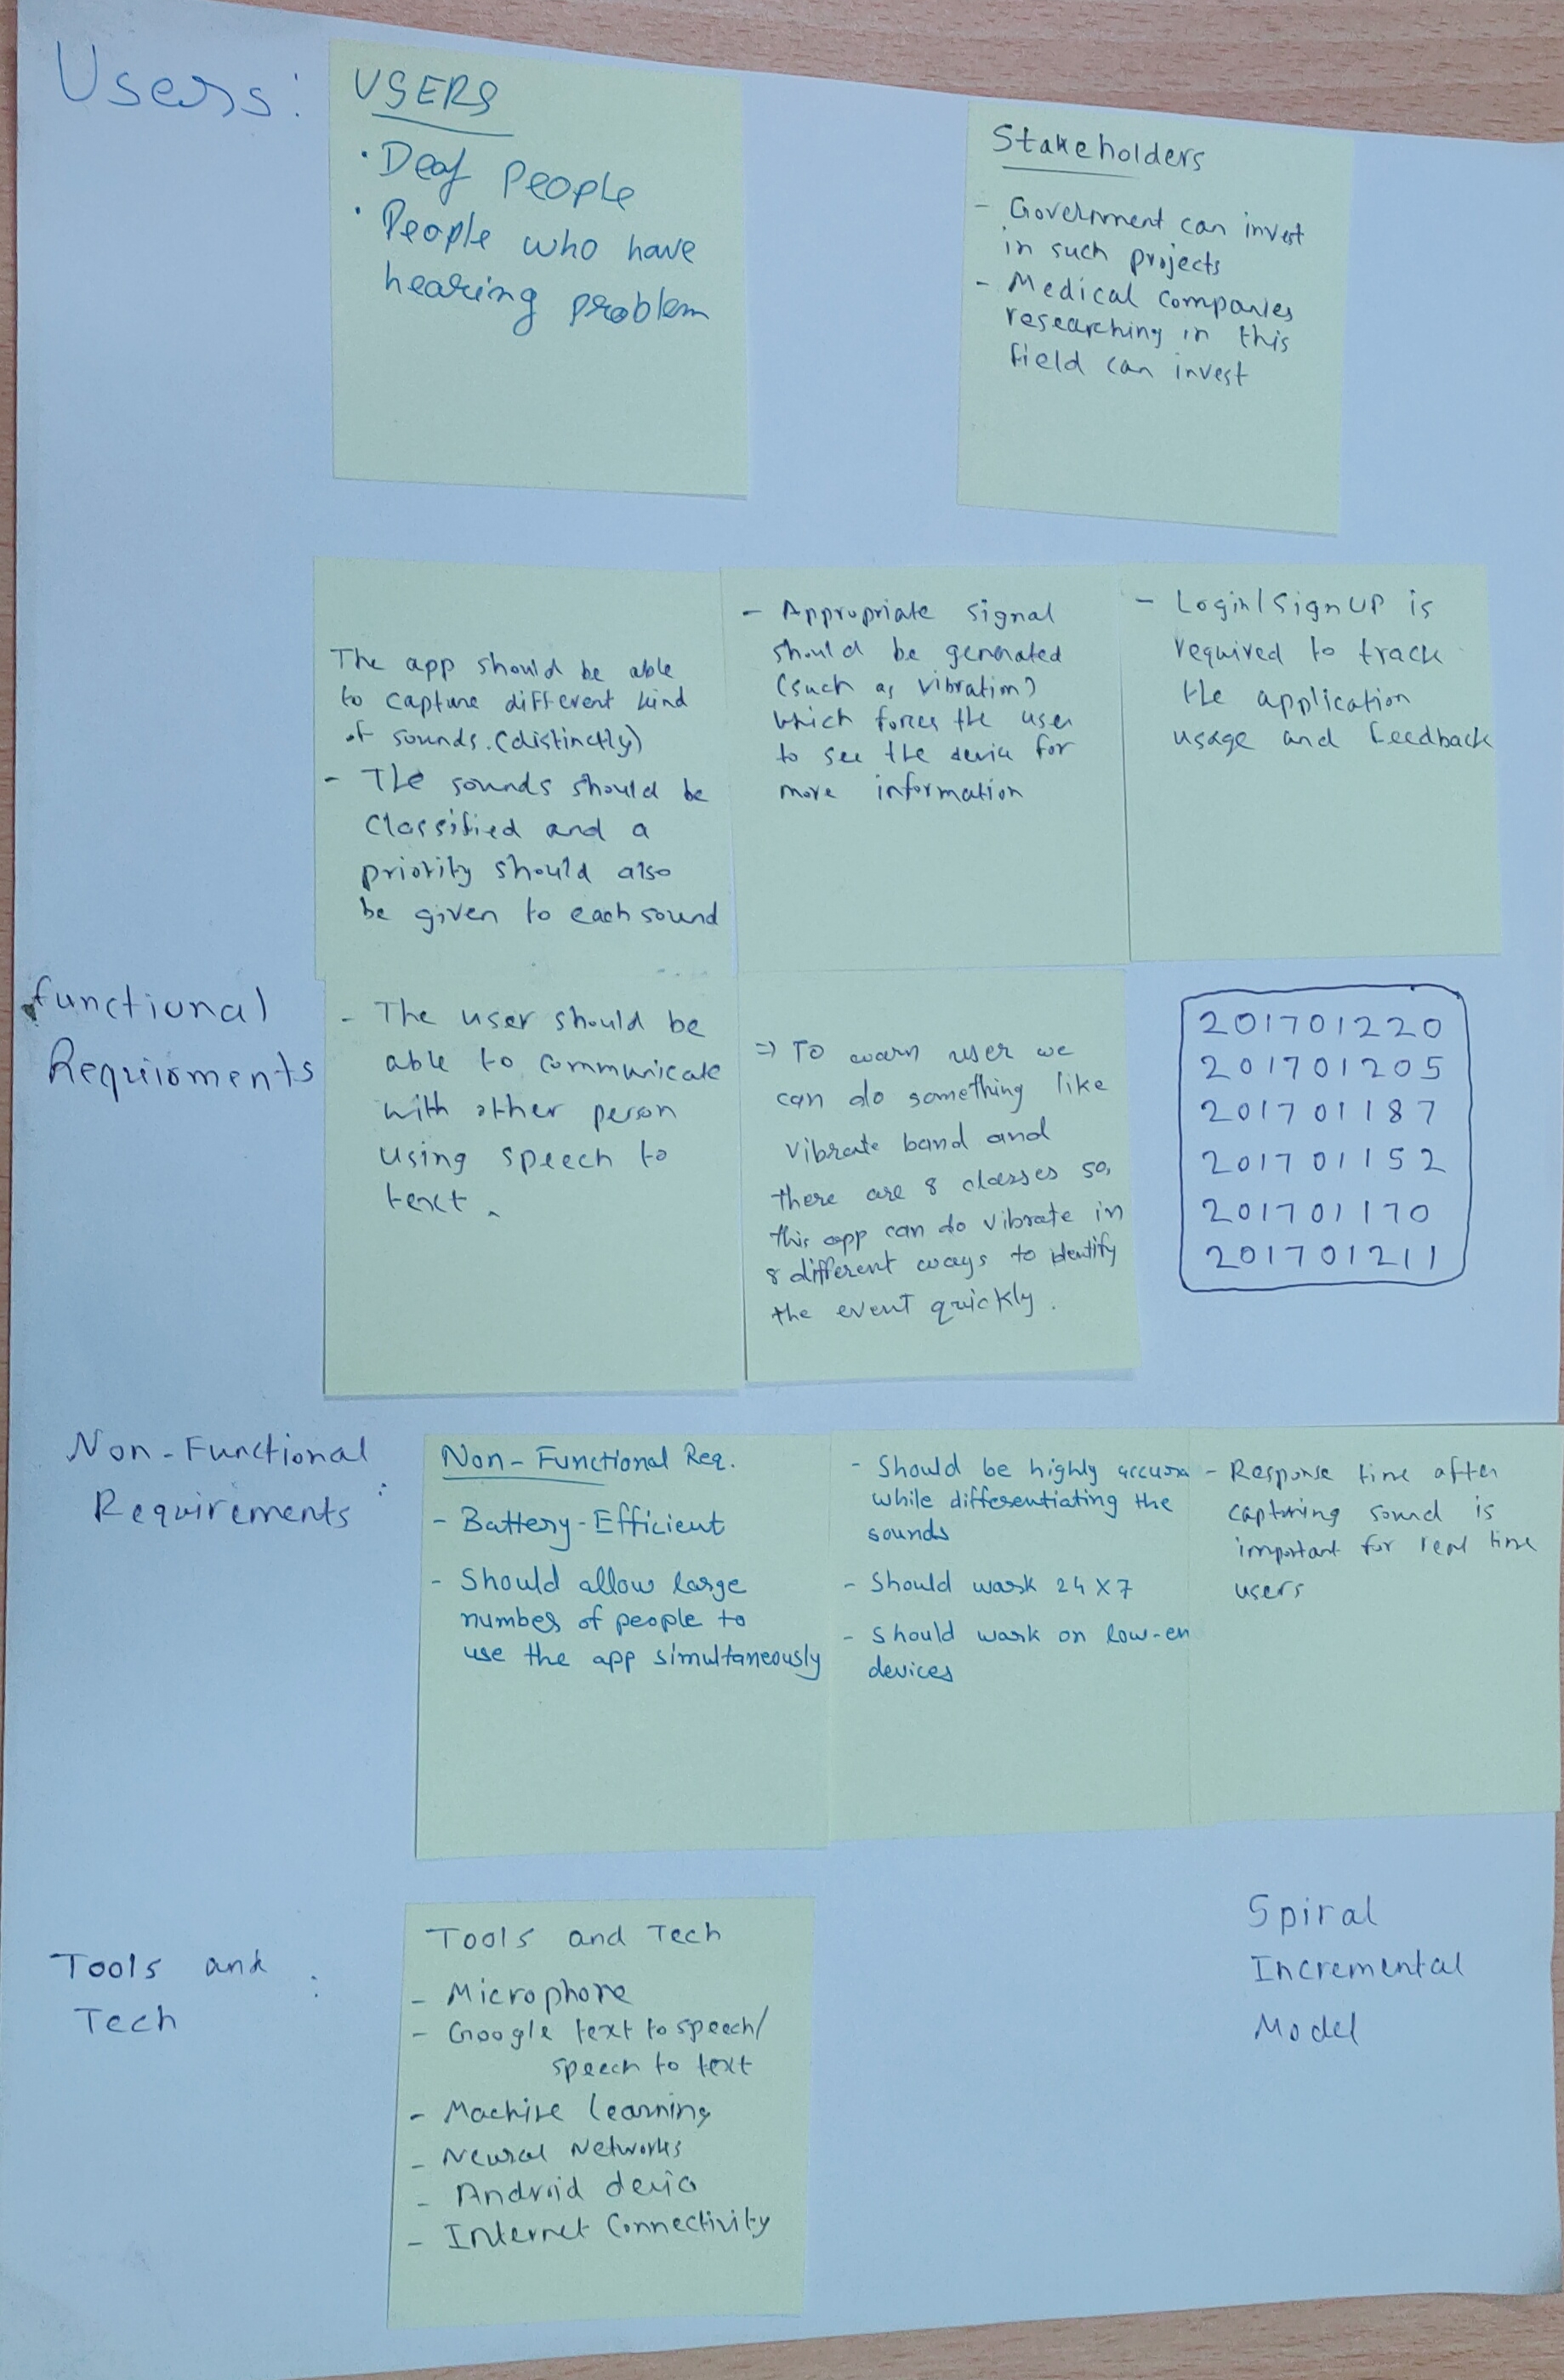 Users:
USERS
• Deaf People
• People who have
hearing problem
Stakeholders
- Government can invest
in such projects
- Medical companies
researching in this
field can invest
The app should be able
to capture different kind
of sounds. (distinctly)
- The sounds should be
classified and a
priority should also
be given to each sound
- Appropriate signal
should be generated
(such as vibration)
which forces the user
to see the device for
more information
- Login/SignUP is
required to track
the application
usage and feedback
functional
Requirements
- The user should be
able to communicate
with other person
using speech to
text.
⇒ To warn user we
can do something like
vibrate band and
there are 8 classes so,
this app can do vibrate in
8 different ways to identify
the event quickly.
201701220
201701205
201701187
201701152
201701170
201701211
Non-Functional
Requirements :
Non-Functional Req.
- Battery-Efficient
- Should allow large
number of people to
use the app simultaneously
- Should be highly accura
while differentiating the
sounds
- Should work 24X7
- Should work on low-en
devices
- Response time after
capturing sound is
important for real time
users
Tools and :
Tech
Tools and Tech
- Microphone
- Google text to speech/
speech to text
- Machine learning
- Neural Networks
- Android device
- Internet Connectivity
Spiral
Incremental
Model